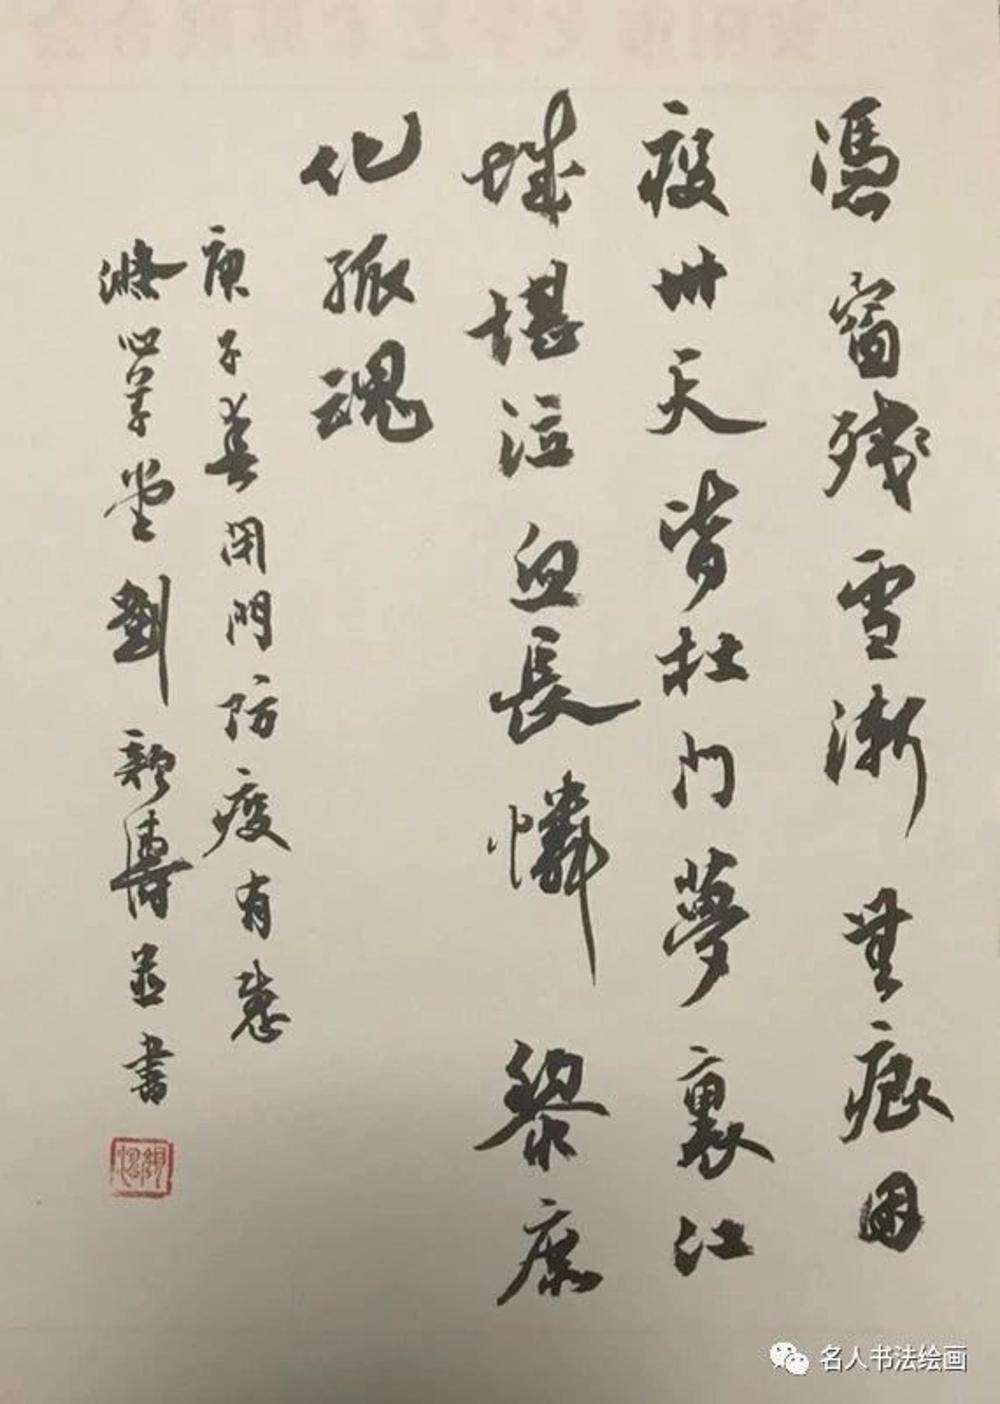 憑窗残雪漸無痕因
疫卅天皆杜門夢裏江
城堪泣血長憐黎庶
化孤魂
庚子春閉門防疫有感
滌心草堂劉並書
名人书法绘画